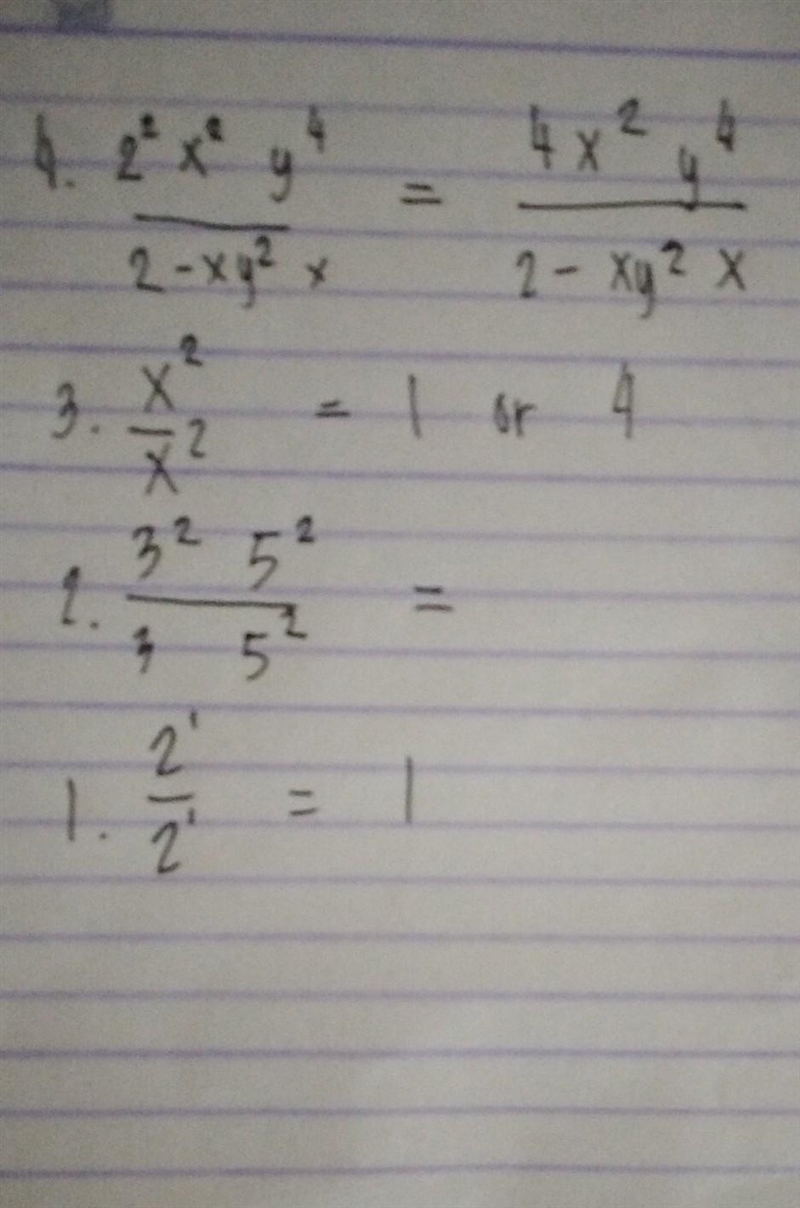 4. 2² x² y⁴ / 2 - xy² x = 4x² y⁴ / 2 - xy² x
3. x² / x² = 1 or 4
2. 3² 5² / 3 5² =
1. 2¹ / 2¹ = 1